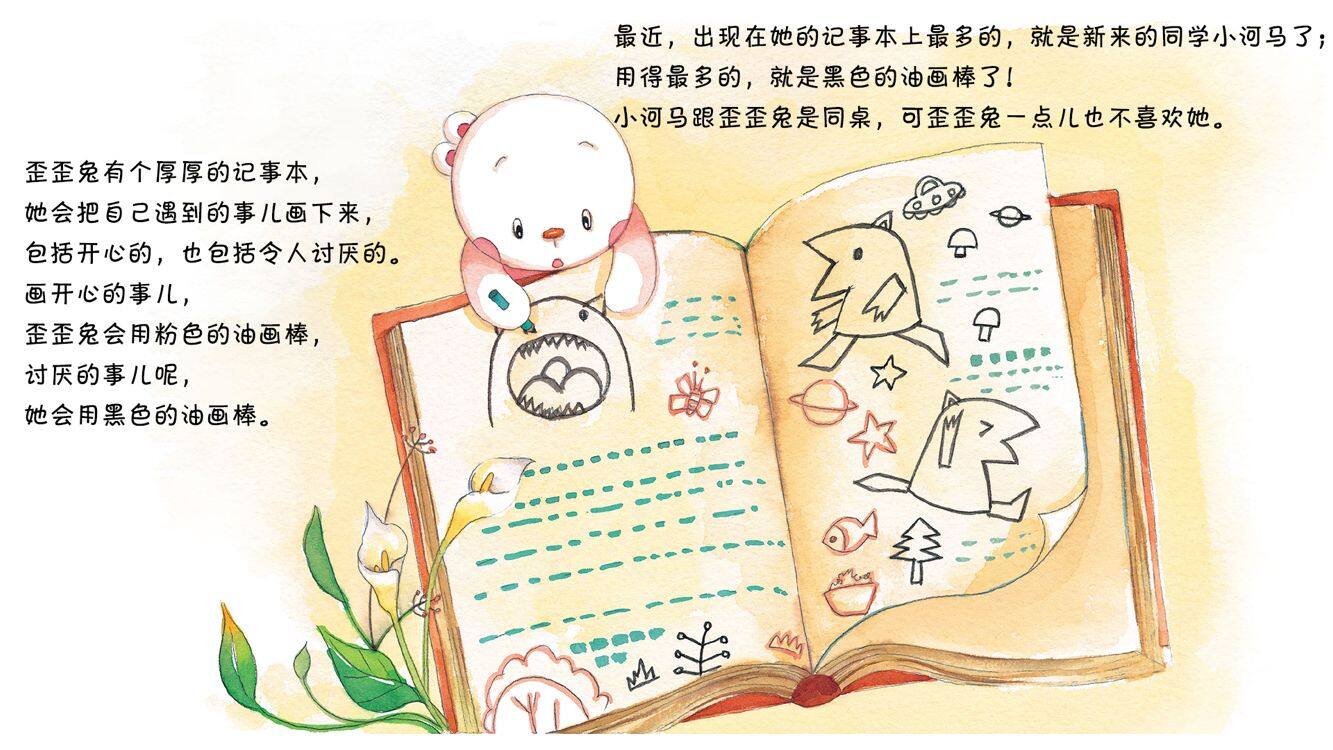 歪歪兔有个厚厚的记事本，
她会把自己遇到的事儿画下来，
包括开心的，也包括令人讨厌的。
画开心的事儿，
歪歪兔会用粉色的油画棒，
讨厌的事儿呢，
她会用黑色的油画棒。
最近，出现在她的记事本上最多的，就是新来的同学小河马了；
用得最多的，就是黑色的油画棒了！
小河马跟歪歪兔是同桌，可歪歪兔一点儿也不喜欢她。